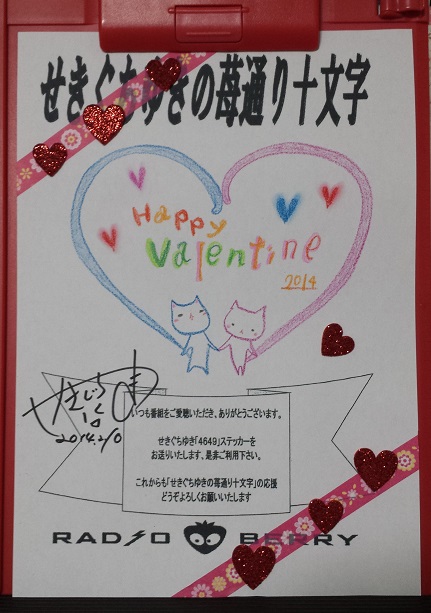 せきぐちゆきの苺通り十文字
Happy
Valentine
2014
せきぐちゆき
2014.2/10
いつも番組をご聴取いただき、ありがとうございます。
せきぐちゆき「4649」ステッカーを
お送りいたします、是非ご利用下さい。
これからも「せきぐちゆきの苺通り十文字」の応援
どうぞよろしくお願いいたします
RADIO BERRY